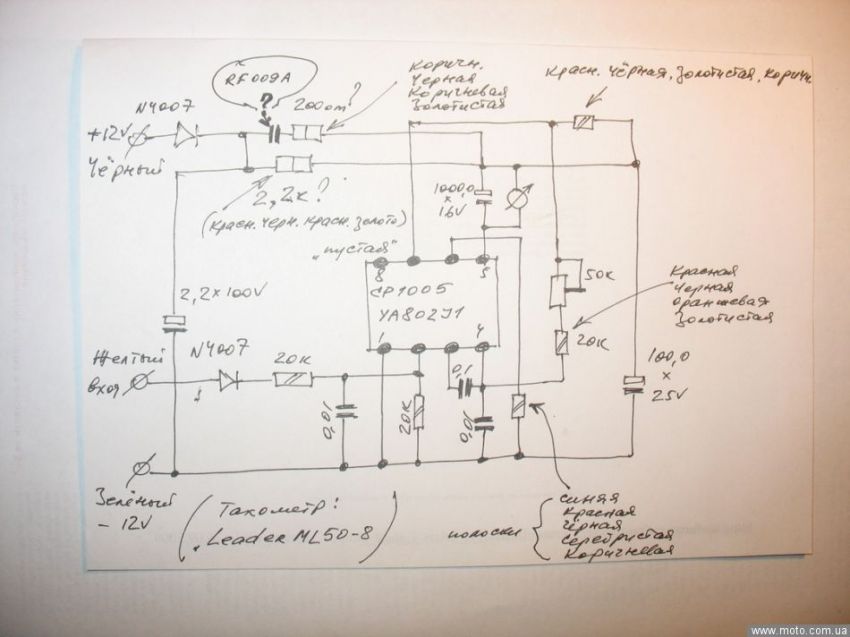 RF009A
?
N4007
200om?
Коричн.
Чёрная
Коричневая
Золотистая
Красн. Чёрная, Золотистая, Коричн
+12V
Чёрный
2,2к?
(Красн. Черн. Красн. Золото)
1000,0
x
16V
"пустая"
8
5
CP1005
YA802J1
1
4
50к
Красная
Чёрная
Оранжевая
Золотистая
20к
2,2x100V
Желтый
вход
N4007
20к
0,01
20к
0,1
0,01
100,0
x
25V
Зелёный
- 12V
Такометр:
"Leader ML50-8
полоски
синяя
Красная
Чёрная
Серебристая
Коричневая
www.moto.com.ua